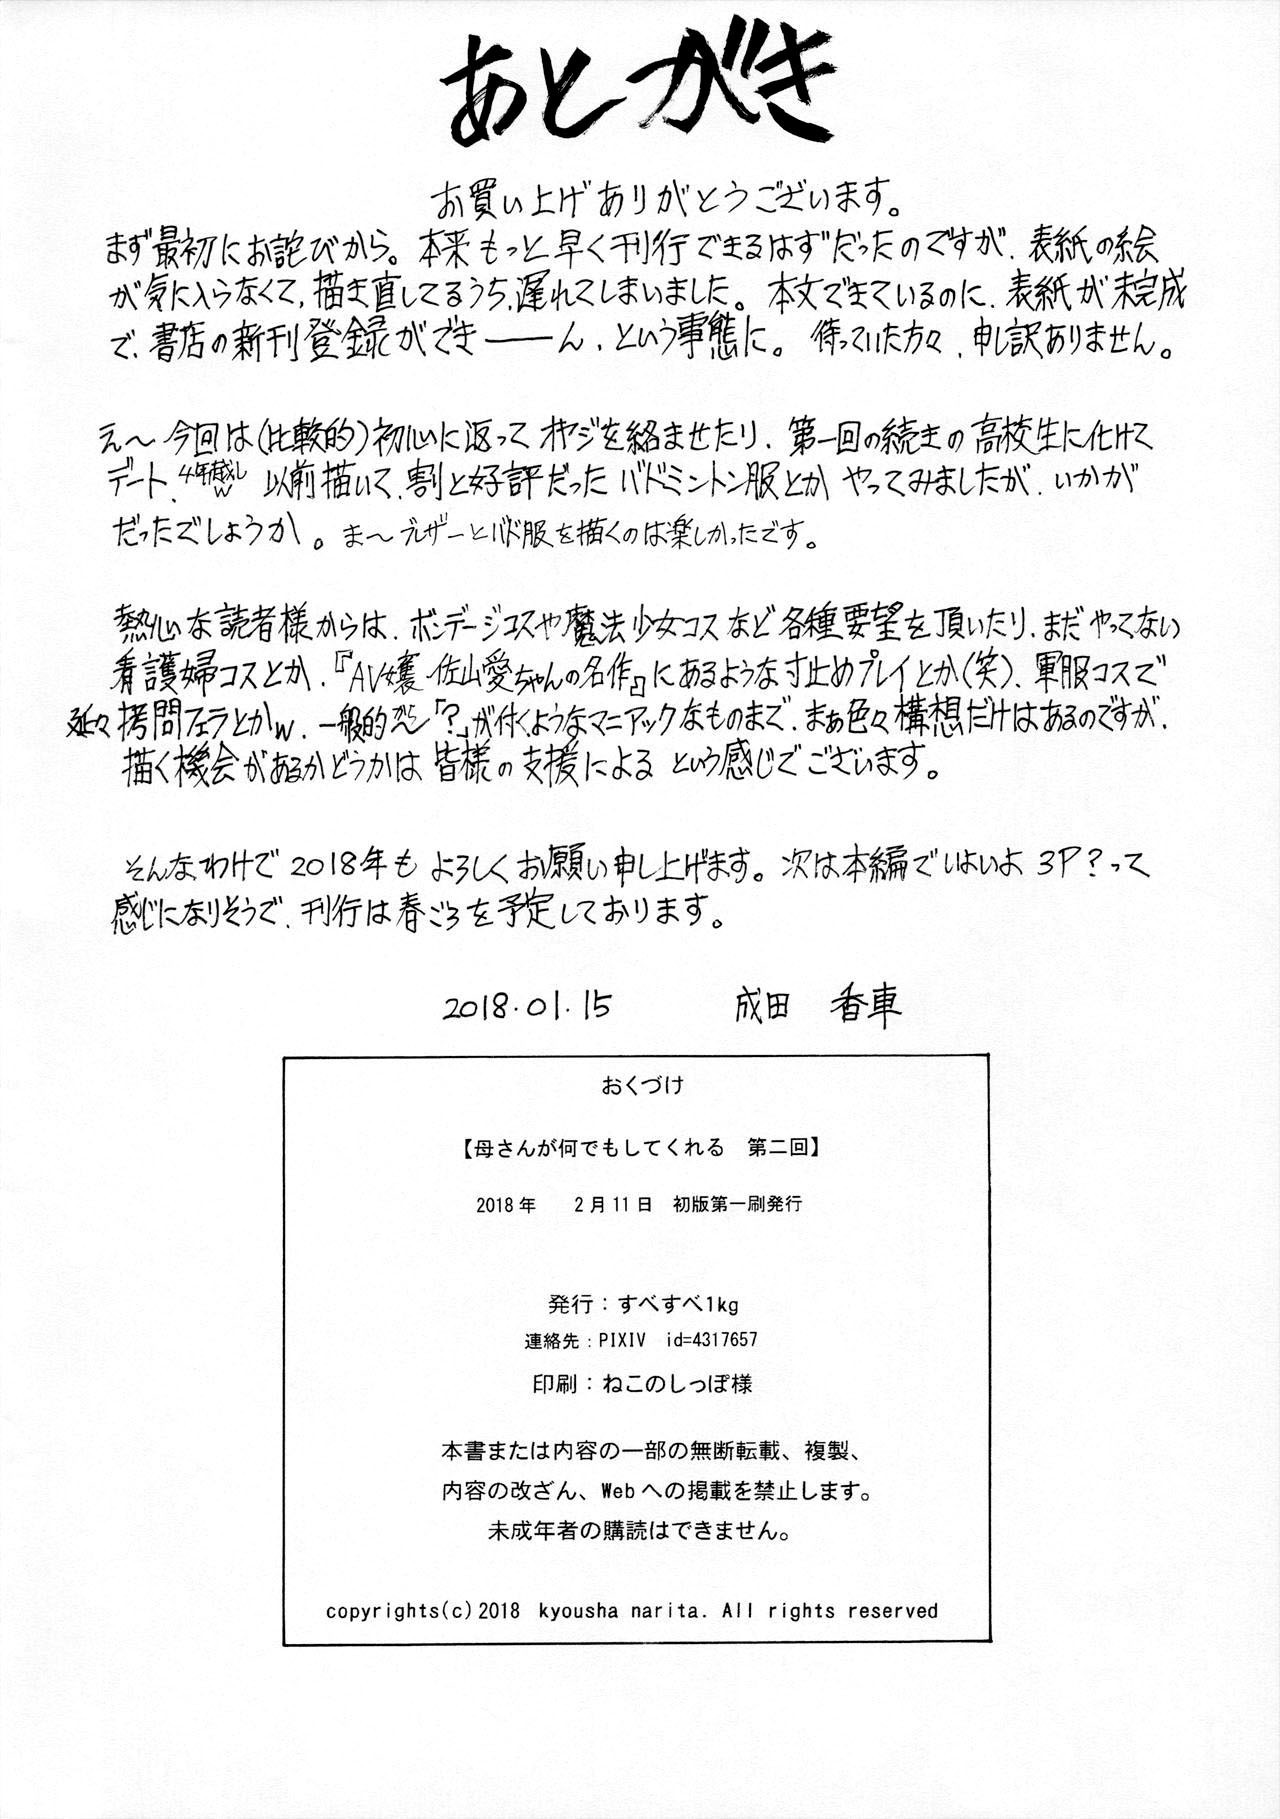 あとがき
お買い上げありがとうございます。
まず最初にお詫びから。本来もっと早く刊行できるはずだったのですが、表紙の絵
が気に入らなくて、描き直してるうち、遅れてしまいました。本文できているのに、表紙が未完成
で、書店の新刊登録ができーーん、という事態に。待っていた方々、申し訳ありません。
え〜今回は(比較的)初心に返ってオヤジを絡ませたり、第一回の続きの高校生に化けて
デート、4年越しw 以前描いて、割と好評だったバドミントン服とかやってみましたが、いかが
だったでしょうか。ま〜ブレザーとバド服を描くのは楽しかったです。
熱心な読者様からは、ボンデージコスや魔法少女コスなど各種要望を頂いたり、まだやってない
看護婦コスとか、『AV嬢 佐山愛ちゃんの名作』にあるような寸止めプレイとか(笑)、軍服コスで
延々拷問フェラとかw、一般的には「?」が付くようなマニアックなものまで、まぁ色々構想だけはあるのですが、
描く機会があるかどうかは皆様の支援によるという感じでございます。
そんなわけで2018年もよろしくお願い申し上げます。次は本編でいよいよ3P?って
感じになりそうで、刊行は春ごろを予定しております。
2018.01.15 成田 香車
おくづけ
【母さんが何でもしてくれる 第二回】
2018年 2月11日 初版第一刷発行
発行：すべすべ1kg
連絡先：PIXIV id=4317657
印刷：ねこのしっぽ様
本書または内容の一部の無断転載、複製、
内容の改ざん、Webへの掲載を禁止します。
未成年者の購読はできません。
copyrights(c)2018 kyousha narita. All rights reserved